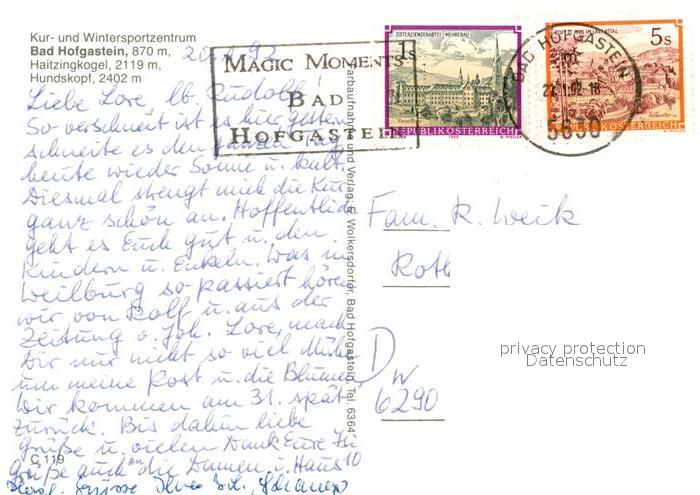 Kur- und Wintersportzentrum
Bad Hofgastein, 870 m,
Haitzingkogel, 2119 m,
Hundskopf, 2402 m
20.1.92
Liebe Lore, lb. Rudolf!
So verschneit ist es hier, gestern
schneite es den ganzen Tag,
heute wieder Sonne u. kalt.
Diesmal strengt mich die Kur
ganz schön an. Hoffentlich
geht es Euch gut u. den
Kindern u. Enkeln. Was in
Weilburg so passiert hören
wir von Rolf u. aus der
Zeitung v. Joh. Lore, mach
Dir nur nicht so viel Mühe
um meine Post u. die Blumen
Wir kommen am 31. spät
zurück. Bis dahin liebe
Grüße u. vielen Dank Eure
Grüße auch an die Damen i. Haus 10
C 119
MAGIC MOMENTS
BAD
HOFGASTEIN
ZISTERZIENSERABTEI MEHRERAU
1s
REPUBLIK ÖSTERREICH
5s
REPUBLIK ÖSTERREICH
BAD HOFGASTEIN
5630
Farbaufnahme und Verlag: G. Wolkersdorfer, Bad Hofgastein, Tel. 6364
Fam. R. Weik
Roth
D
W
6290
privacy protection
Datenschutz